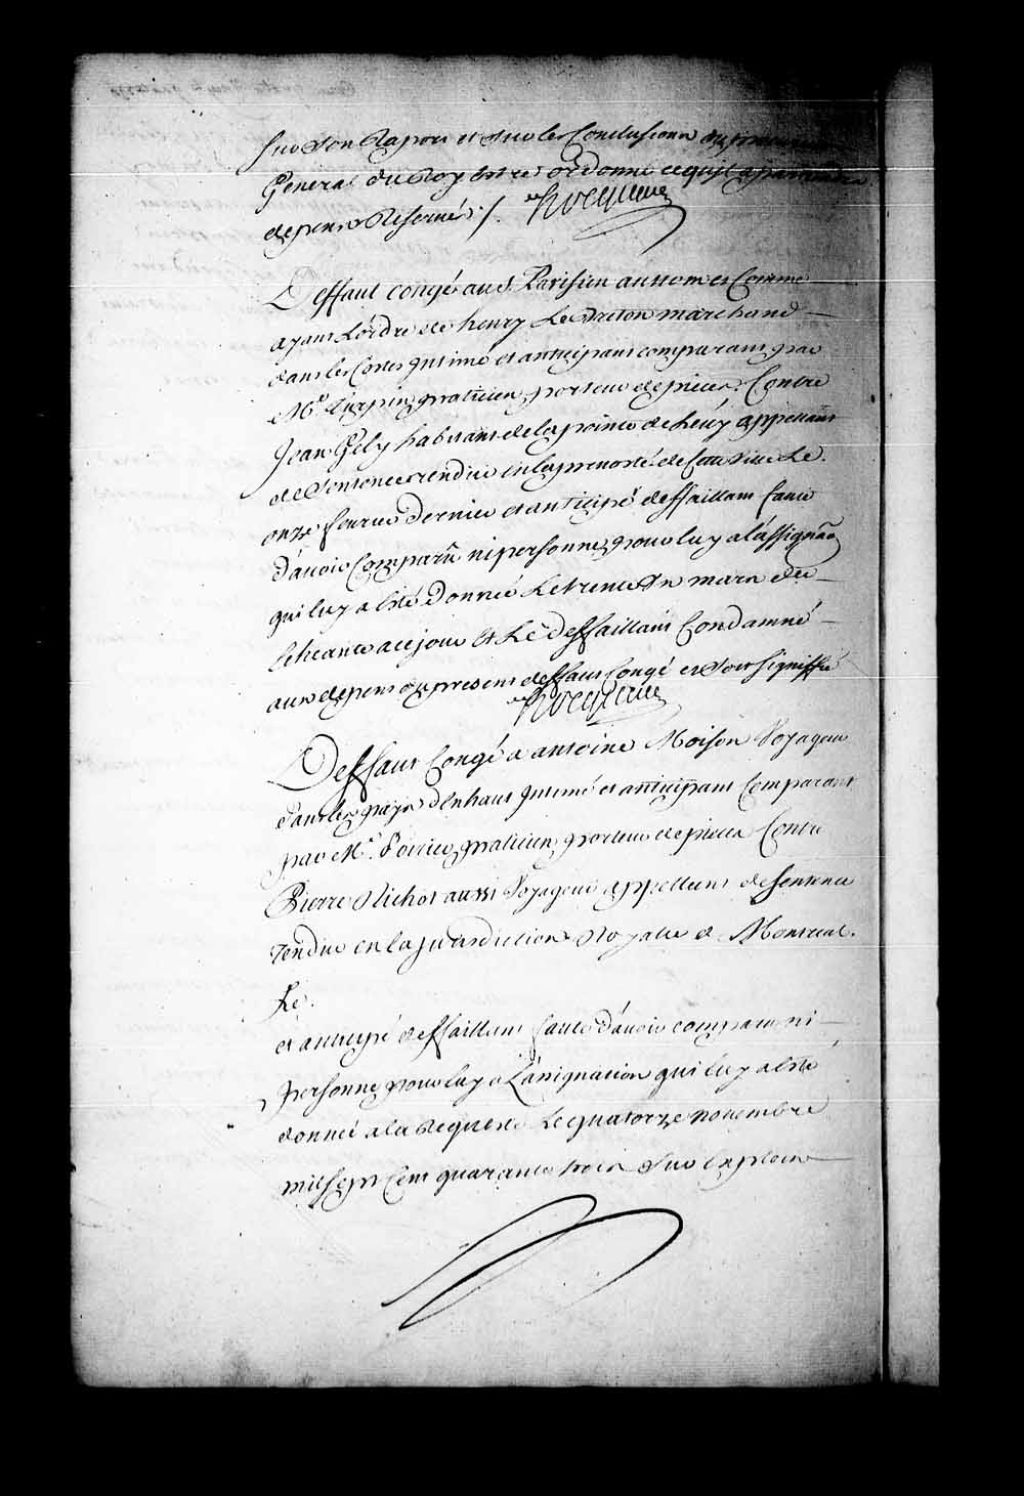 Sur Son Raport et Sur les Conclusions du procureur
General du Roy Estre ordonné ce quil apartiendra
depens Reservés ./. hocquart
Deffaut congé au Sr. Parisien au nom et Comme
ayant L'ordre de henry Le Breton marchand
dans les Costes Intimé et anticipant comparant par
Me. Turpin praticien porteur de pieces. Contre
Jean Gely habitant de la pointe de Levy appellant
de Sentence rendue en la prevosté de Cette ville Le.
onze fevrier Dernier et anticipé deffaillant faute
d'avoir Comparû ni personne pour luy a l'assignãon
qui luy a Eté Donnée Le trente Un mars der
Echeante a ce jour Et Le deffaillant Condamné
aux depens du present deffaut Congé et Soit Signiffié
hocquart
Deffaut Congé a antoine Moison Voyageur
dans les pays d'Enhaut Intimé et anticipant Comparant
par Me. Poirier praticien porteur de pieces Contre
Pierre Richot aussi Voyageur appellant de Sentence
rendue en la Jurisdiction Royalle de Montreal.
Le.
et anticipé deffaillant faute d'avoir comparu ni
personne pour luy a L'assignation qui luy a Eté
donnée a la Requeste Le quatorze novembre
mil Sept Cent quarante trois Sur Exploit